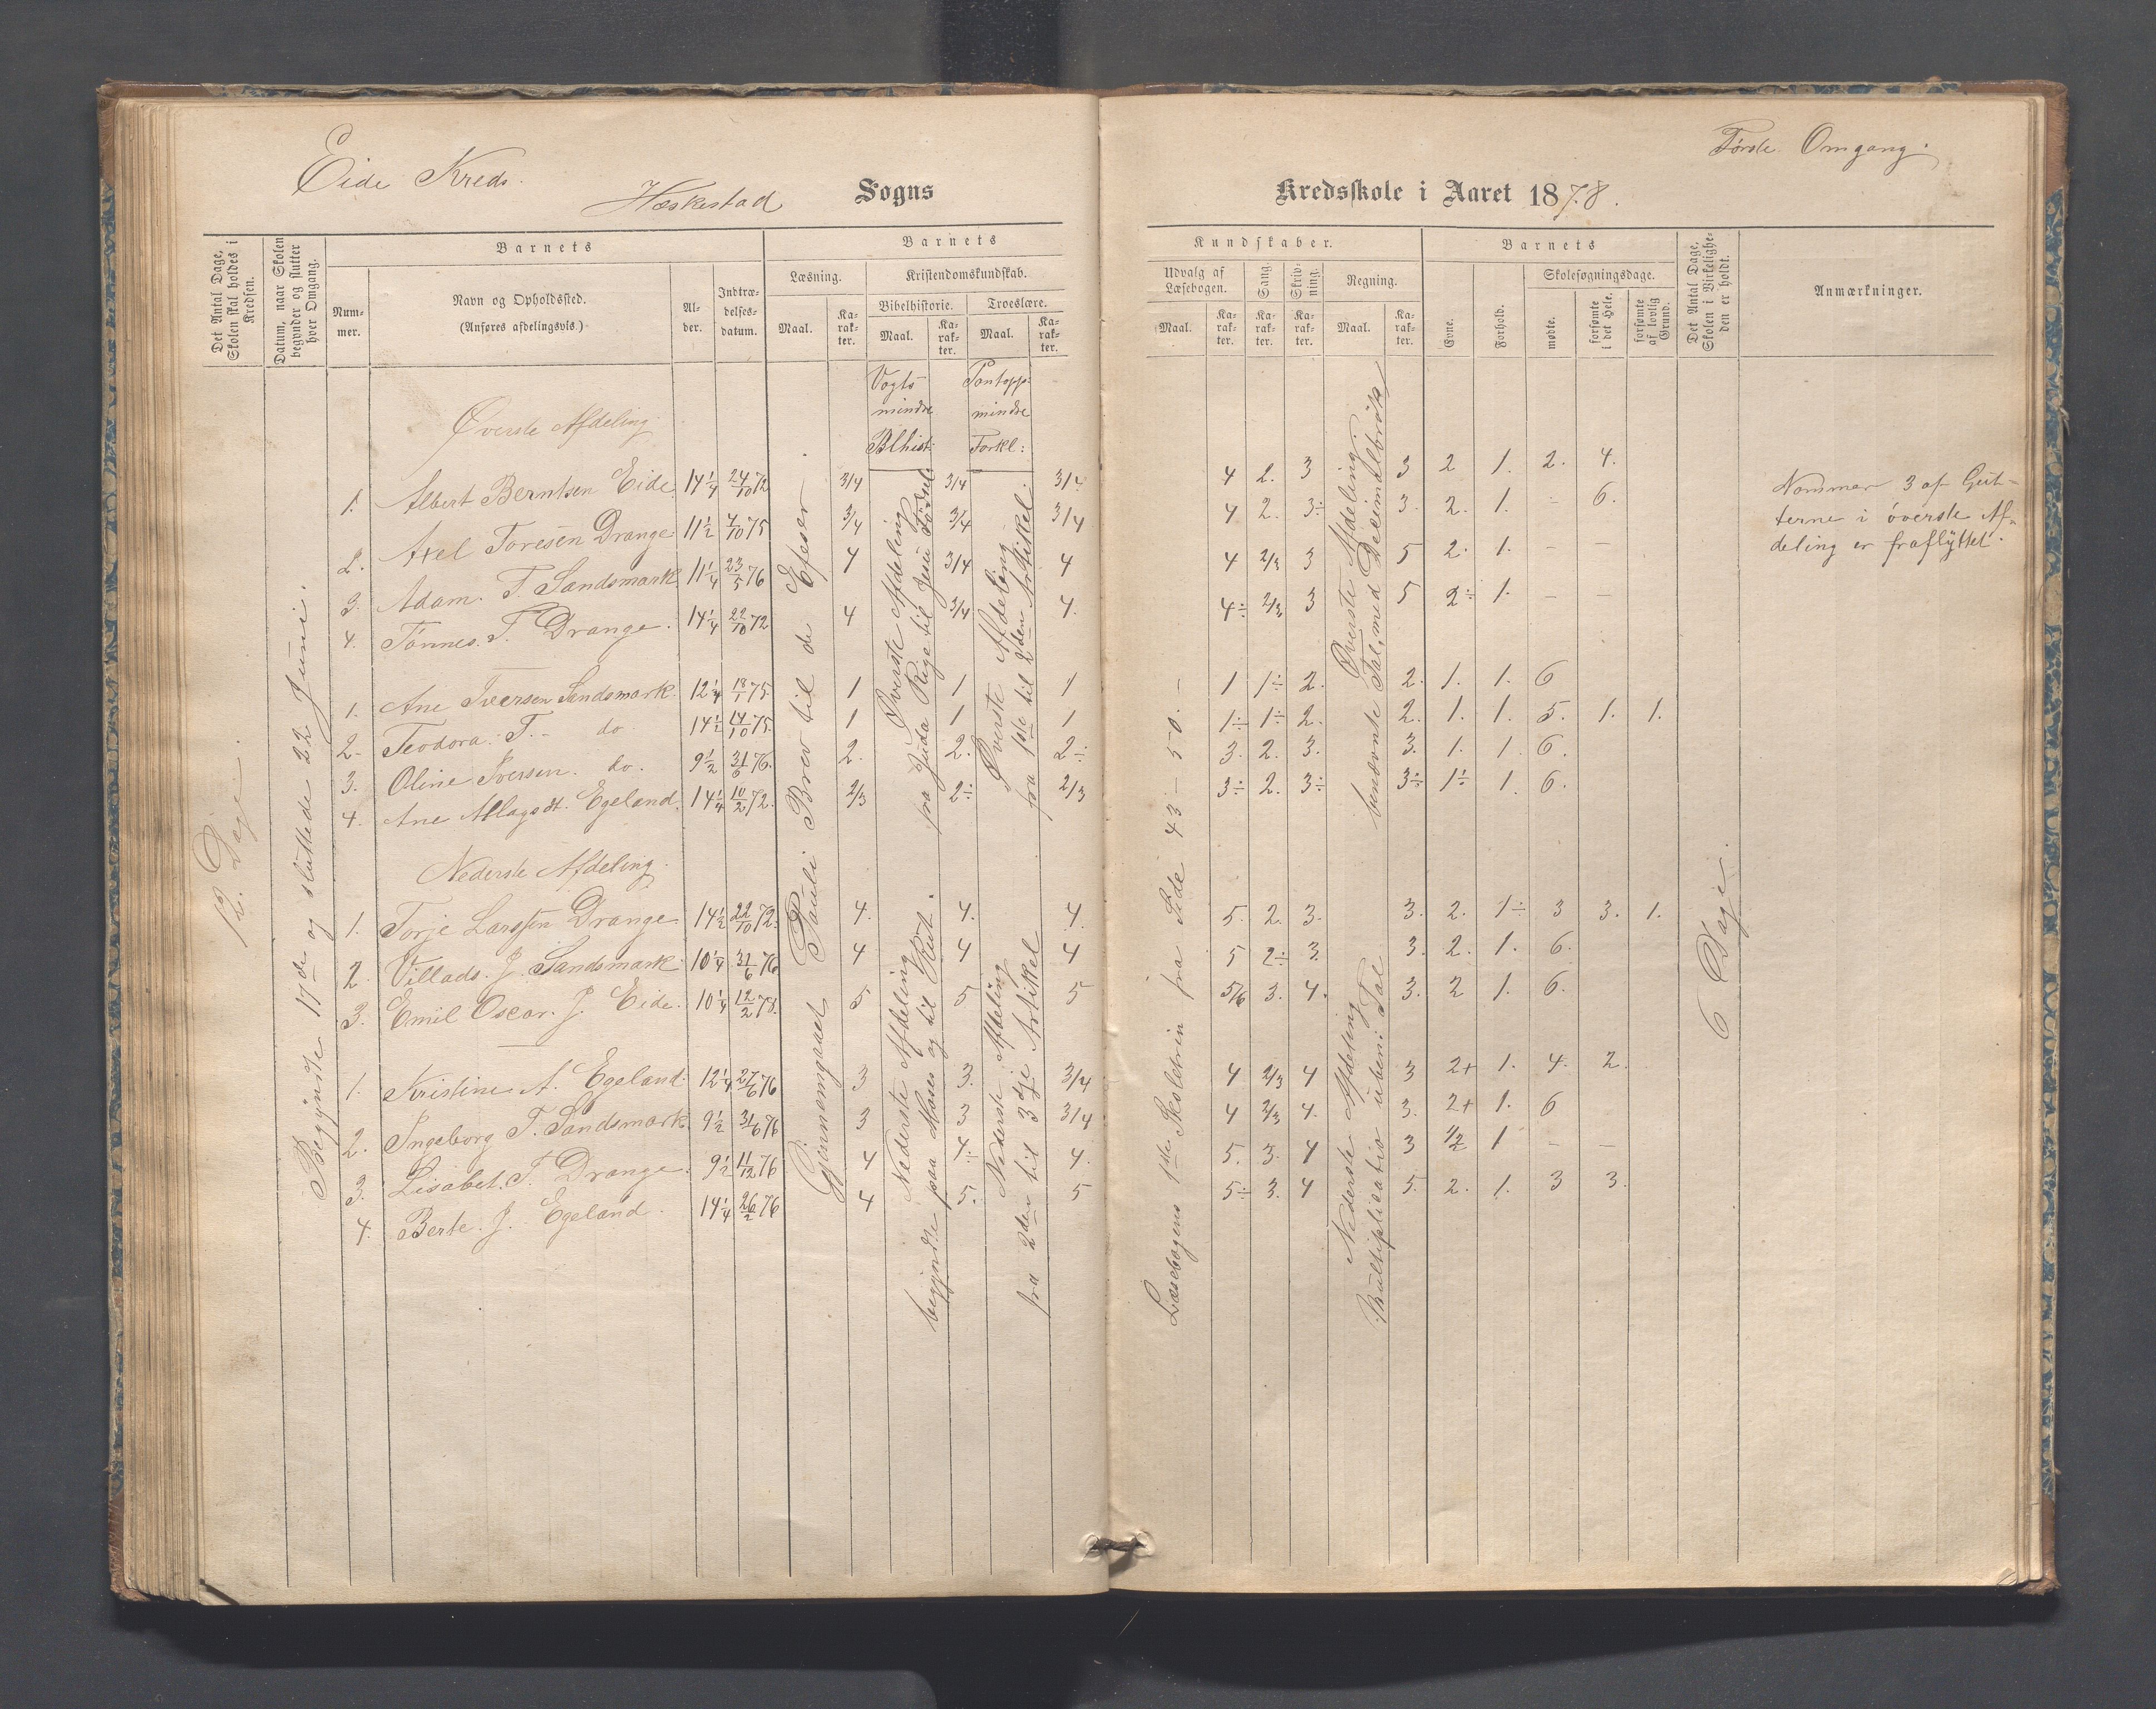 Eide Kreds.
Heskestad Sogns
Første Omgang.
Kredsskole i Aaret 1878.
Det Antal Dage, Skolen skal holdes i Kredsen.
Datum, naar Skolen begynder og slutter hver Omgang.
Barnets
Nummer.
Navn og Opholdssted.
(Anføres afdelingsvis.)
Alder.
Indtrædelsesdatum.
Barnets
Læsning.
Maal.
Karakter.
Kristendomskundskab.
Bibelhistorie.
Maal.
Karakter.
Troeslære.
Maal.
Karakter.
Kundskaber.
Udvalg af Læsebogen.
Maal.
Karakter.
Sang.
Karakter.
Skrivning.
Karakter.
Regning.
Maal.
Karakter.
Barnets
Evne.
Forhold.
Skolesøgningsdage.
mødte.
forsømte i det Hele.
forsømte af lovlig Grund.
Det Antal Dage, Skolen i Virkeligheden er holdt.
Anmærkninger.
12. Dage.
Begyndte 17de og sluttede 22 Juni.
Gjennemgaaet Pauli Brev til de Efeser
Vogts mindre Blhist:
Pontopp: mindre Forkl:
Øverste Afdeling fra Juda Rige til Jesu Fødsel
Øverste Afdeling fra 1ste til 2den Artikel.
Nederste Afdeling begyndte paa Moses og til Rut.
Nederste Afdeling fra 2den til 3dje Artikel
Læsebogens 1ste Skoletrin fra Side 43 – 50. –
Øverste Afdeling benævnte Tal, med Decimalbrök
Nederste Afdeling Multiplicatio uben: Tal
6 Dage.
Øverste Afdeling
1. Albert Berntsen Eide. 14 1/4 24/10 72 3/4 3/4 3/4 4 2. 3 3 2 1. 2. 4.
2. Axel Toresen Drange 11 1/2 4/10 75 3/4 3/4 3/4 4 2. 3÷ 3. 2. 1. – 6.
3. Adam. T. Sandsmark 11 1/4 23/5 76 4 3/4 4 4 2/3 3 5 2. 1. – –
4. Tønnes. T. Drange. 14 1/4 22/10 72 4 3/4 4. 4÷ 2/3 3 5 2÷ 1. – –
1. Ane Iversen Sandsmark. 12 1/4 18/1 75. 1 1 1 1 1÷ 2. 2. 1. 1. 6
2. Teodora. T. – do 14 1/2 14/10 75. 1 1 1 1÷ 1÷ 2. 2. 1. 1. 5. 1. 1.
3. Oline Iversen. do. 9 1/2 31/6 76. 2. 2. 2÷ 3. 2. 3. 3. 1. 1. 6.
4. Ane Aslagsdt. Egeland. 14 1/4 10/2 72. 2/3 2÷ 2/3 3÷ 2. 3÷ 3÷ 1÷ 1. 6.
Nederste Afdeling.
1. Torje Larssen Drange 14 1/2 22/10 72. 4. 4. 4. 5. 2. 3. 3. 2. 1÷ 3 3. 1.
2. Villads. J. Sandsmark 10 1/4 31/6 76 4 4 4 5 2÷ 3. 3. 2. 1. 6.
3. Emil Oscar. J. Eide. 10 1/4 12/2 78. 5 5 5 5/6 3. 4. 3. 2 1. 6.
1. Kristine A. Egeland. 12 1/4 27/6 76 3 3. 3/4 4 2/3 4 3 2+ 1. 4. 2.
2. Ingeborg T. Sandsmark. 9 1/2 31/6 76 3 3 3/4 4 2/3 4. 3. 2+ 1. 6
3. Lisabet. T. Drange. 9 1/2 11/12 76 4 4÷ 4. 5. 3. 4 3 1/2 1 – –
4. Berte. J. Egeland. 14 1/4 26/2 76 4 5. 5 5÷ 3. 4 5. 2. 1. 3 3.
Nommer 3 af Gut-
terne i överste Af-
deling er fraflyttet.